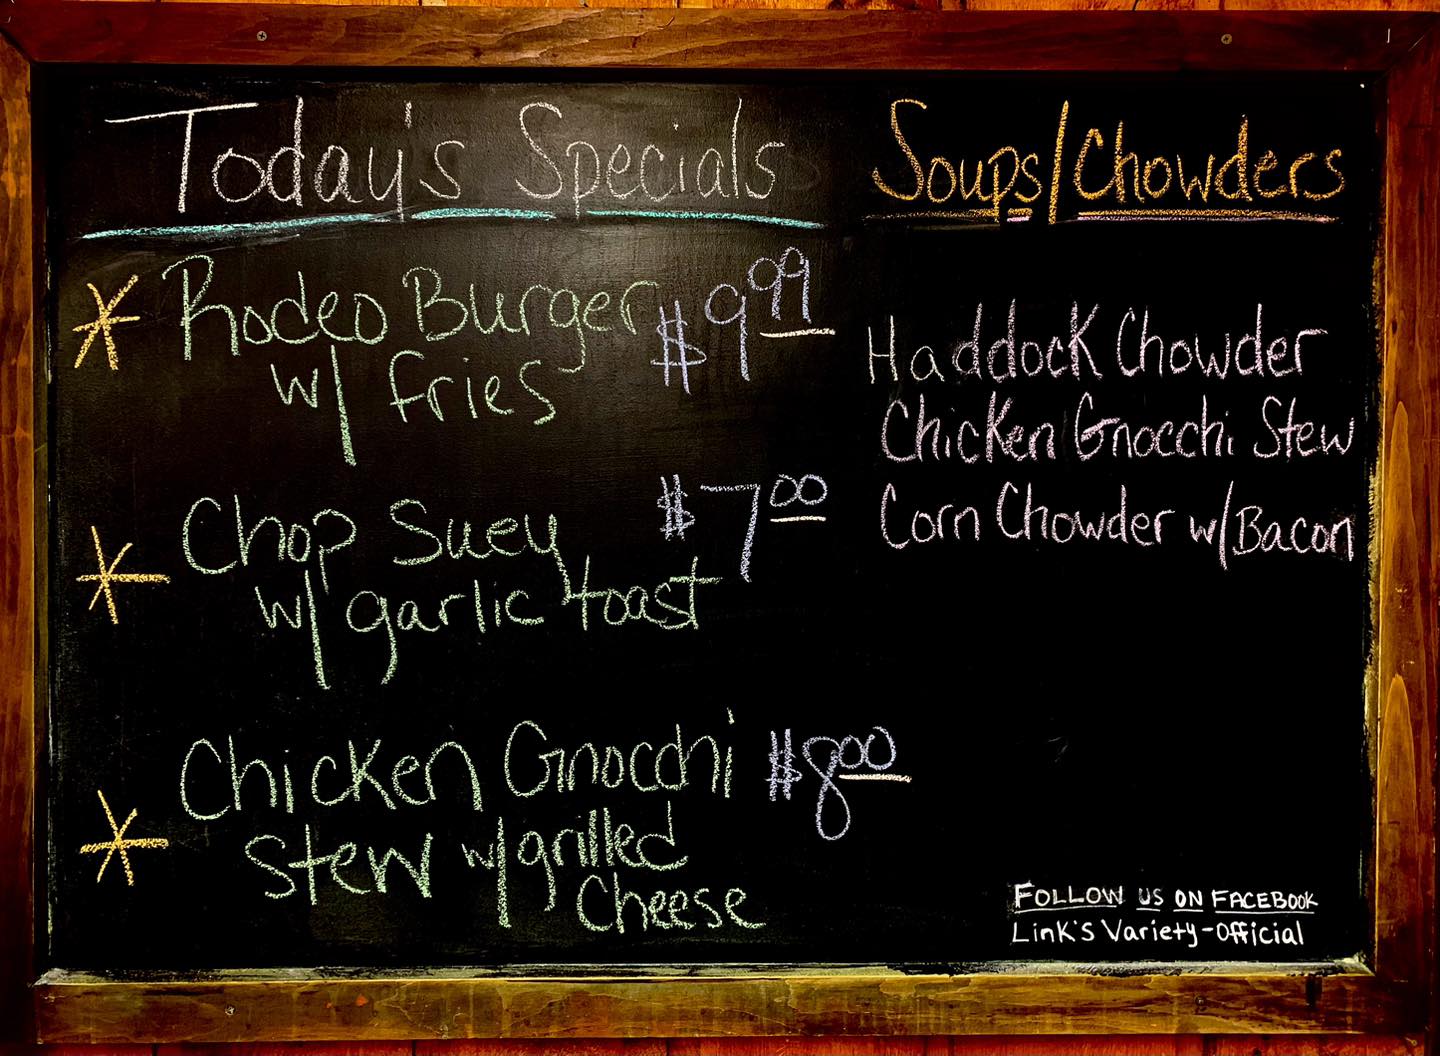 Today's Specials
* Rodeo Burger $9.99
w/ fries
* Chop Suey $7.00
w/ garlic toast
* Chicken Gnocchi $8.00
Stew w/grilled
Cheese
Soups/Chowders
Haddock Chowder
Chicken Gnocchi Stew
Corn Chowder w/Bacon
FOLLOW US ON FACEBOOK
Link's Variety-Official